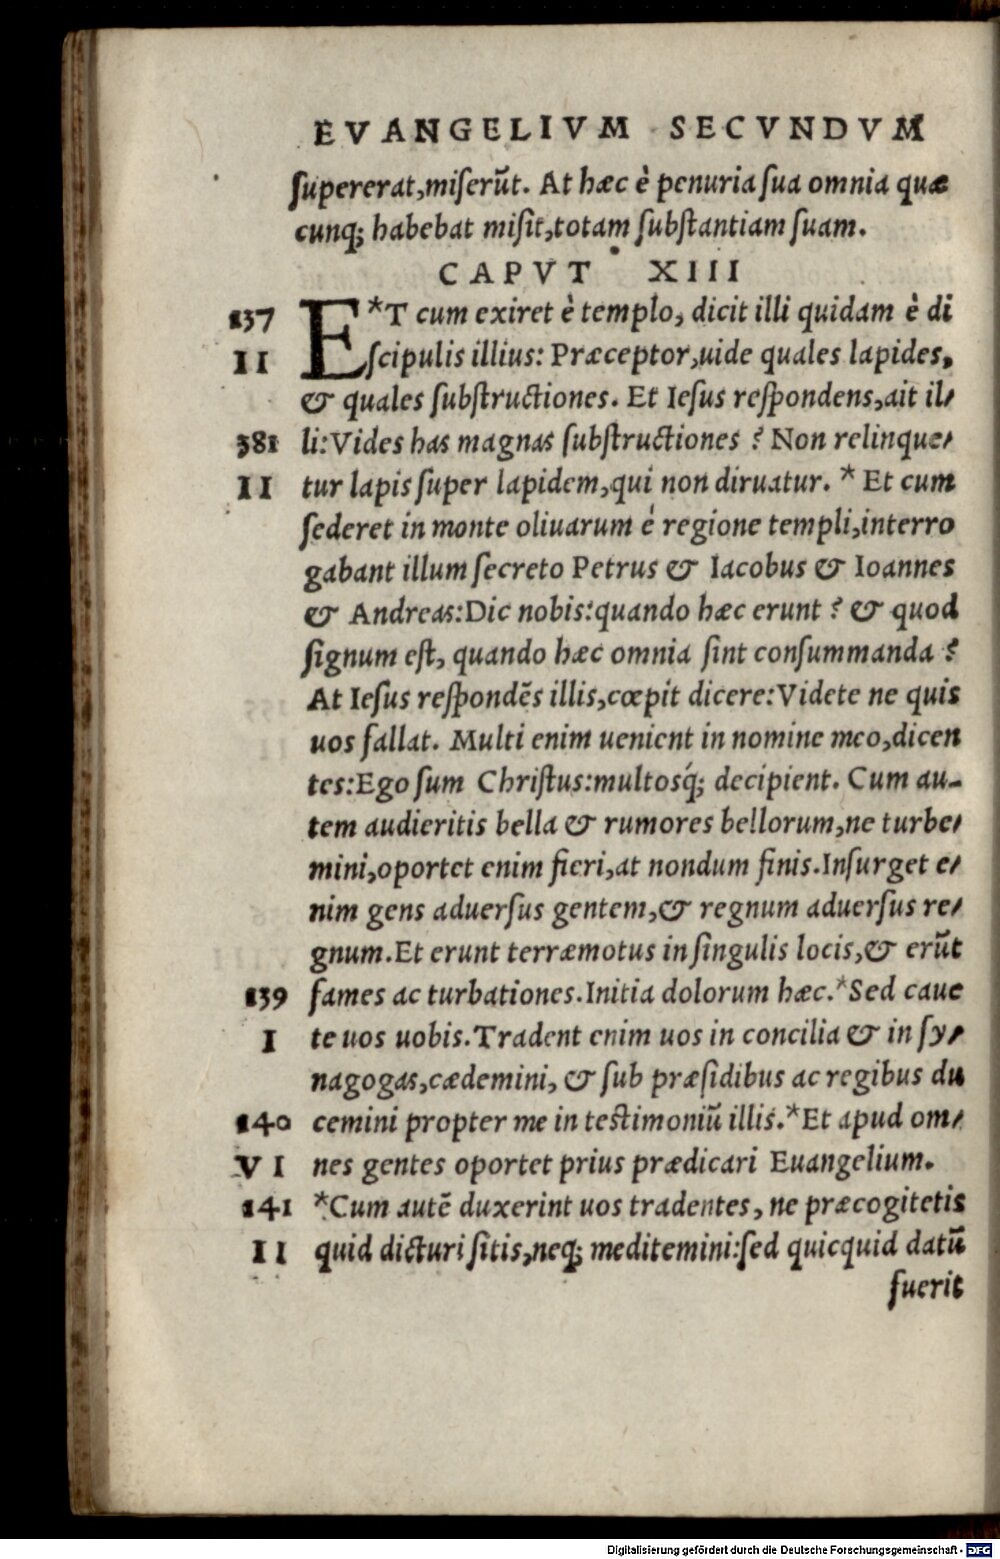 EVANGELIVM SECVNDVM
ſupererat,miſerūt. At hæc è penuria ſua omnia quæ
cunq; habebat miſit,totam ſubſtantiam ſuam.
CAPVT XIII
137 E*T cum exiret è templo, dicit illi quidam è di
II ſcipulis illius: Præceptor,uide quales lapides,
& quales ſubſtructiones. Et Ieſus reſpondens,ait il⸗
381 li:Vides has magnas ſubſtructiones ? Non relinque⸗
II tur lapis ſuper lapidem,qui non diruatur. * Et cum
ſederet in monte oliuarum è regione templi,interro
gabant illum ſecreto Petrus & Iacobus & Ioannes
& Andreas:Dic nobis:quando hæc erunt ? & quod
ſignum eſt, quando hæc omnia ſint conſummanda ?
At Ieſus reſpondēs illis,cœpit dicere:Videte ne quis
uos fallat. Multi enim uenient in nomine meo,dicen
tes:Ego ſum Chriſtus:multosq́; decipient. Cum au-
tem audieritis bella & rumores bellorum,ne turbe⸗
mini,oportet enim fieri,at nondum finis.Inſurget e⸗
nim gens aduerſus gentem,& regnum aduerſus re⸗
gnum.Et erunt terræmotus in ſingulis locis,& erūt
139 fames ac turbationes.Initia dolorum hæc.*Sed caue
I te uos uobis.Tradent enim uos in concilia & in ſy⸗
nagogas,cædemini, & ſub præſidibus ac regibus du
140 cemini propter me in teſtimoniū illis.*Et apud om⸗
VI nes gentes oportet prius prædicari Euangelium.
141 *Cum autē duxerint uos tradentes, ne præcogitetis
II quid dicturi ſitis,neq; meditemini:ſed quicquid datū
fuerit
Digitalisierung gefördert durch die Deutsche Forschungsgemeinschaft - DFG